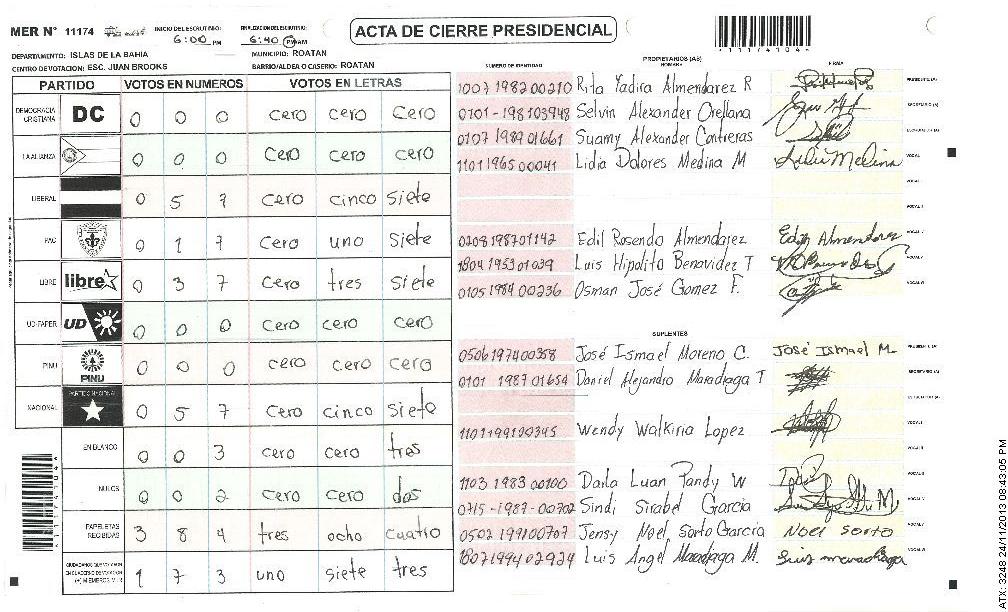 MER N° 11174
INICIO DEL ESCRUTINIO: 6:00 PM
FINALIZACION DEL ESCRUTINIO: 6:40 PM AM
ACTA DE CIERRE PRESIDENCIAL
111174104
DEPARTAMENTO: ISLAS DE LA BAHIA
MUNICIPIO: ROATAN
CENTRO DE VOTACION: ESC. JUAN BROOKS
BARRIO/ALDEA O CASERIO: ROATAN
PARTIDO VOTOS EN NUMEROS VOTOS EN LETRAS
DEMOCRACIA CRISTIANA DC 0 0 0 cero cero Cero
LA ALIANZA 0 0 0 cero cero cero
LIBERAL 0 5 7 cero cinco siete
PAC 0 1 7 cero uno siete
LIBRE libre 0 3 7 cero tres siete
UD-FAPER UD 0 0 0 cero cero cero
PINU PINU 0 0 0 cero cero cero
NACIONAL PARTIDO NACIONAL 0 5 7 cero cinco siete
EN BLANCO 0 0 3 cero cero tres
NULOS 0 0 2 cero cero dos
PAPELETAS RECIBIDAS 3 8 4 tres ocho cuatro
CIUDADANOS QUE VOTARON EN CUADERNO DE VOTACION (+) MIEMBROS MER 1 7 3 uno siete tres
NUMERO DE IDENTIDAD
PROPIETARIOS (AS)
NOMBRE
FIRMA
1007 198200210 Rita Yadira Almendarez R PRESIDENTE (A)
0101-198103948 Selvin Alexander Orellana SECRETARIO (A)
0107 1989 01661 Suamy Alexander Contreras ESCRUTADOR (A)
1101 1965 00041 Lidia Dolores Medina M Lidia Medina VOCAL I
0208 198701142 Edil Rosendo Almendarez Edil Almendarez
1804 1953 01039 Luis Hipolito Benavidez T
0105 1984 00236 Osman José Gomez F.
SUPLENTES
0506 197400358 José Ismael Moreno C. José Ismael M. PRESIDENTE (A)
0101 1987 01654 Daniel Alejandro Maradiaga T SECRETARIO (A)
1101199100345 Wendy Walkiria Lopez VOCAL I
1103 1983 00100 Darla Luan Pandy W
0715-1987-00702 Sindi Sirabel Garcia
0502 199100707 Jensy Noel Sorto Garcia Noel Sorto
1807 1994 02924 Luis Angel Maradiaga M. Luis maradiaga
ATX: 3248 24/11/2013 08:43:05 PM